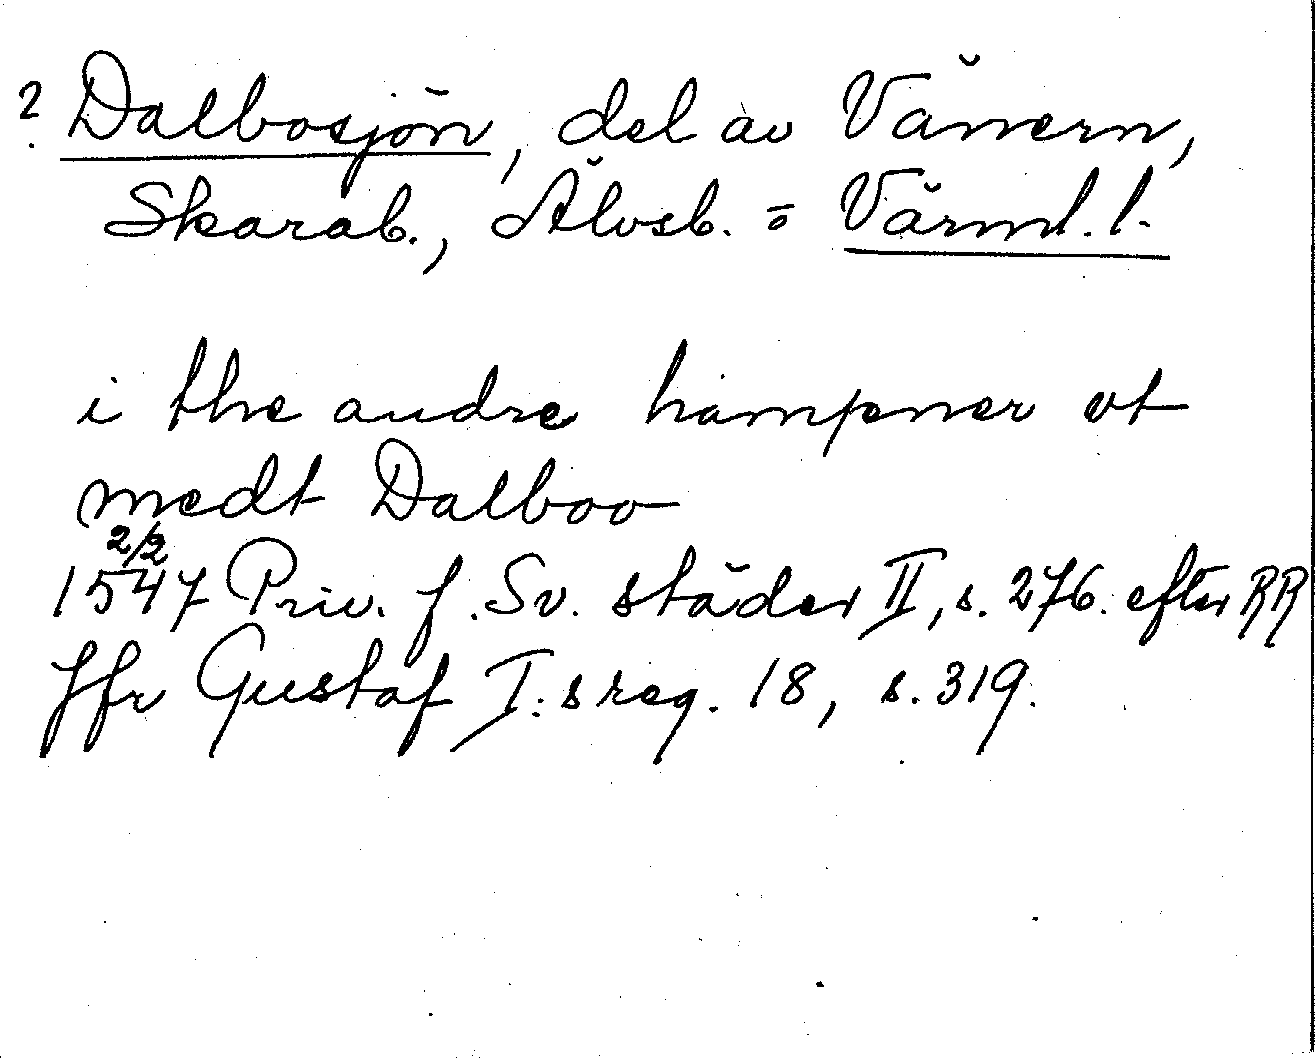 ? Dalbosjön, del av Vänern,
Skarab., Älvsb. o Värml. l.
i the andre hampner vt
medt Dalboo
2/2
1547 Priv. f. Sv. städer II, s. 276. efter RR
Jfr Gustaf I:s reg. 18, s. 319.